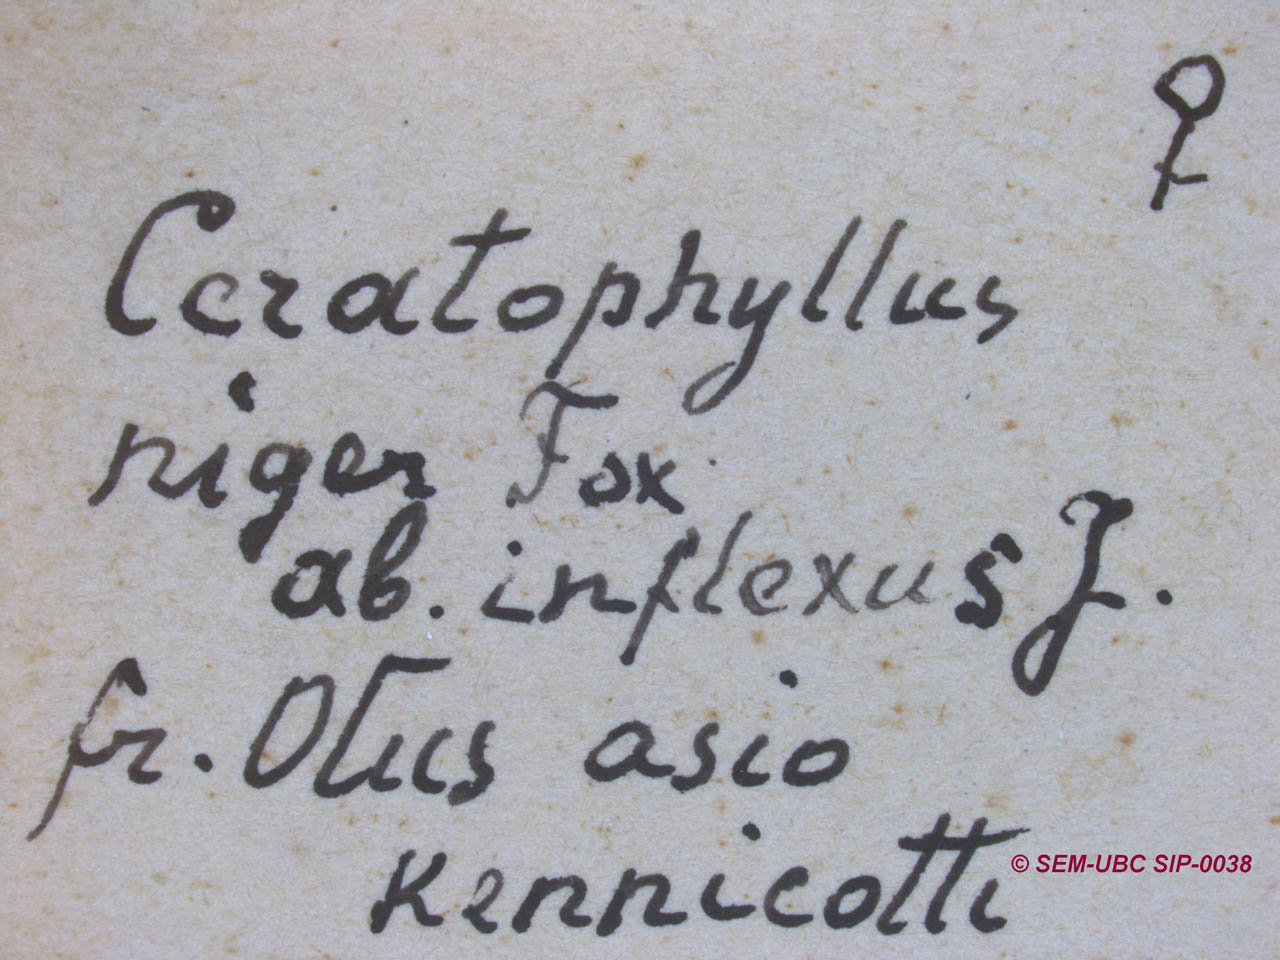 ♀
Ceratophyllus
niger Fox
ab. inflexus J.
fr. Otus asio
kennicotti
© SEM-UBC SIP-0038